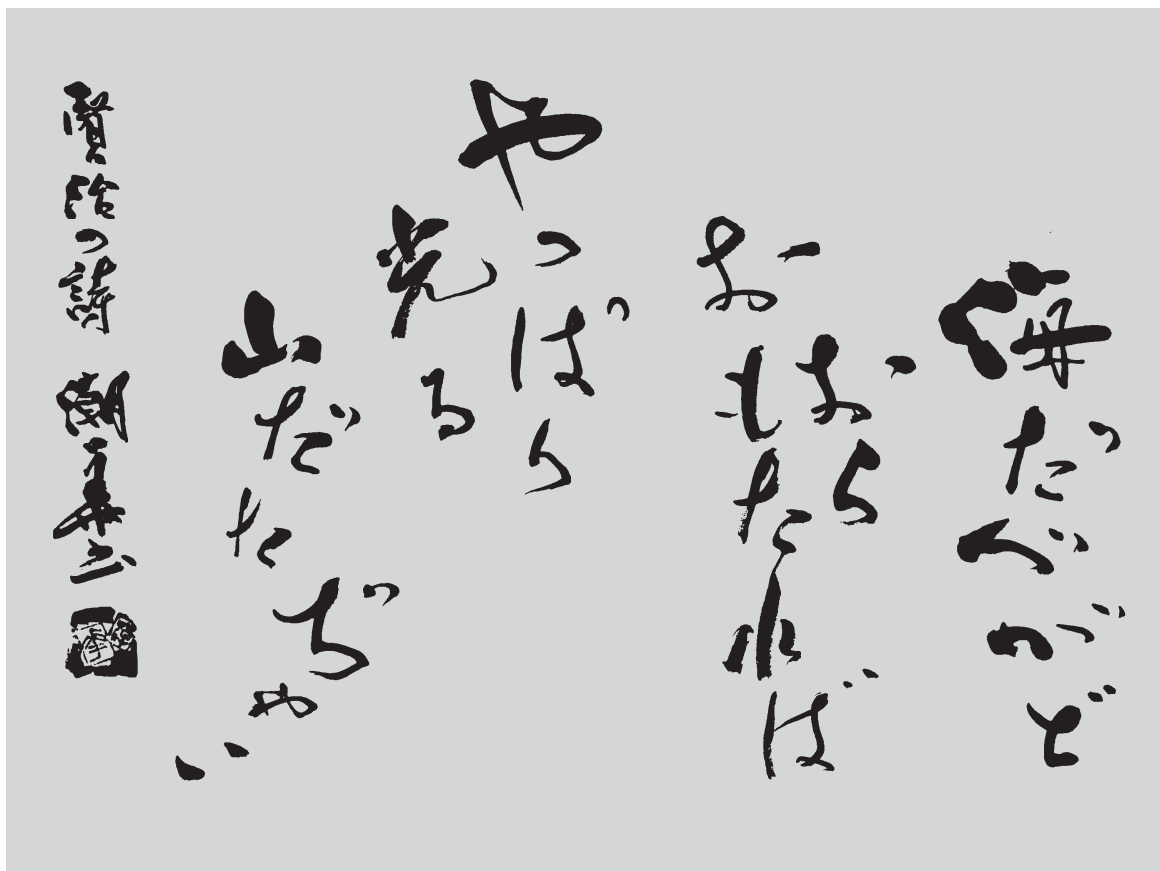 海だべがど
おら
おもたれば
やっぱり
光る
山だたぢゃい
賢治の詩